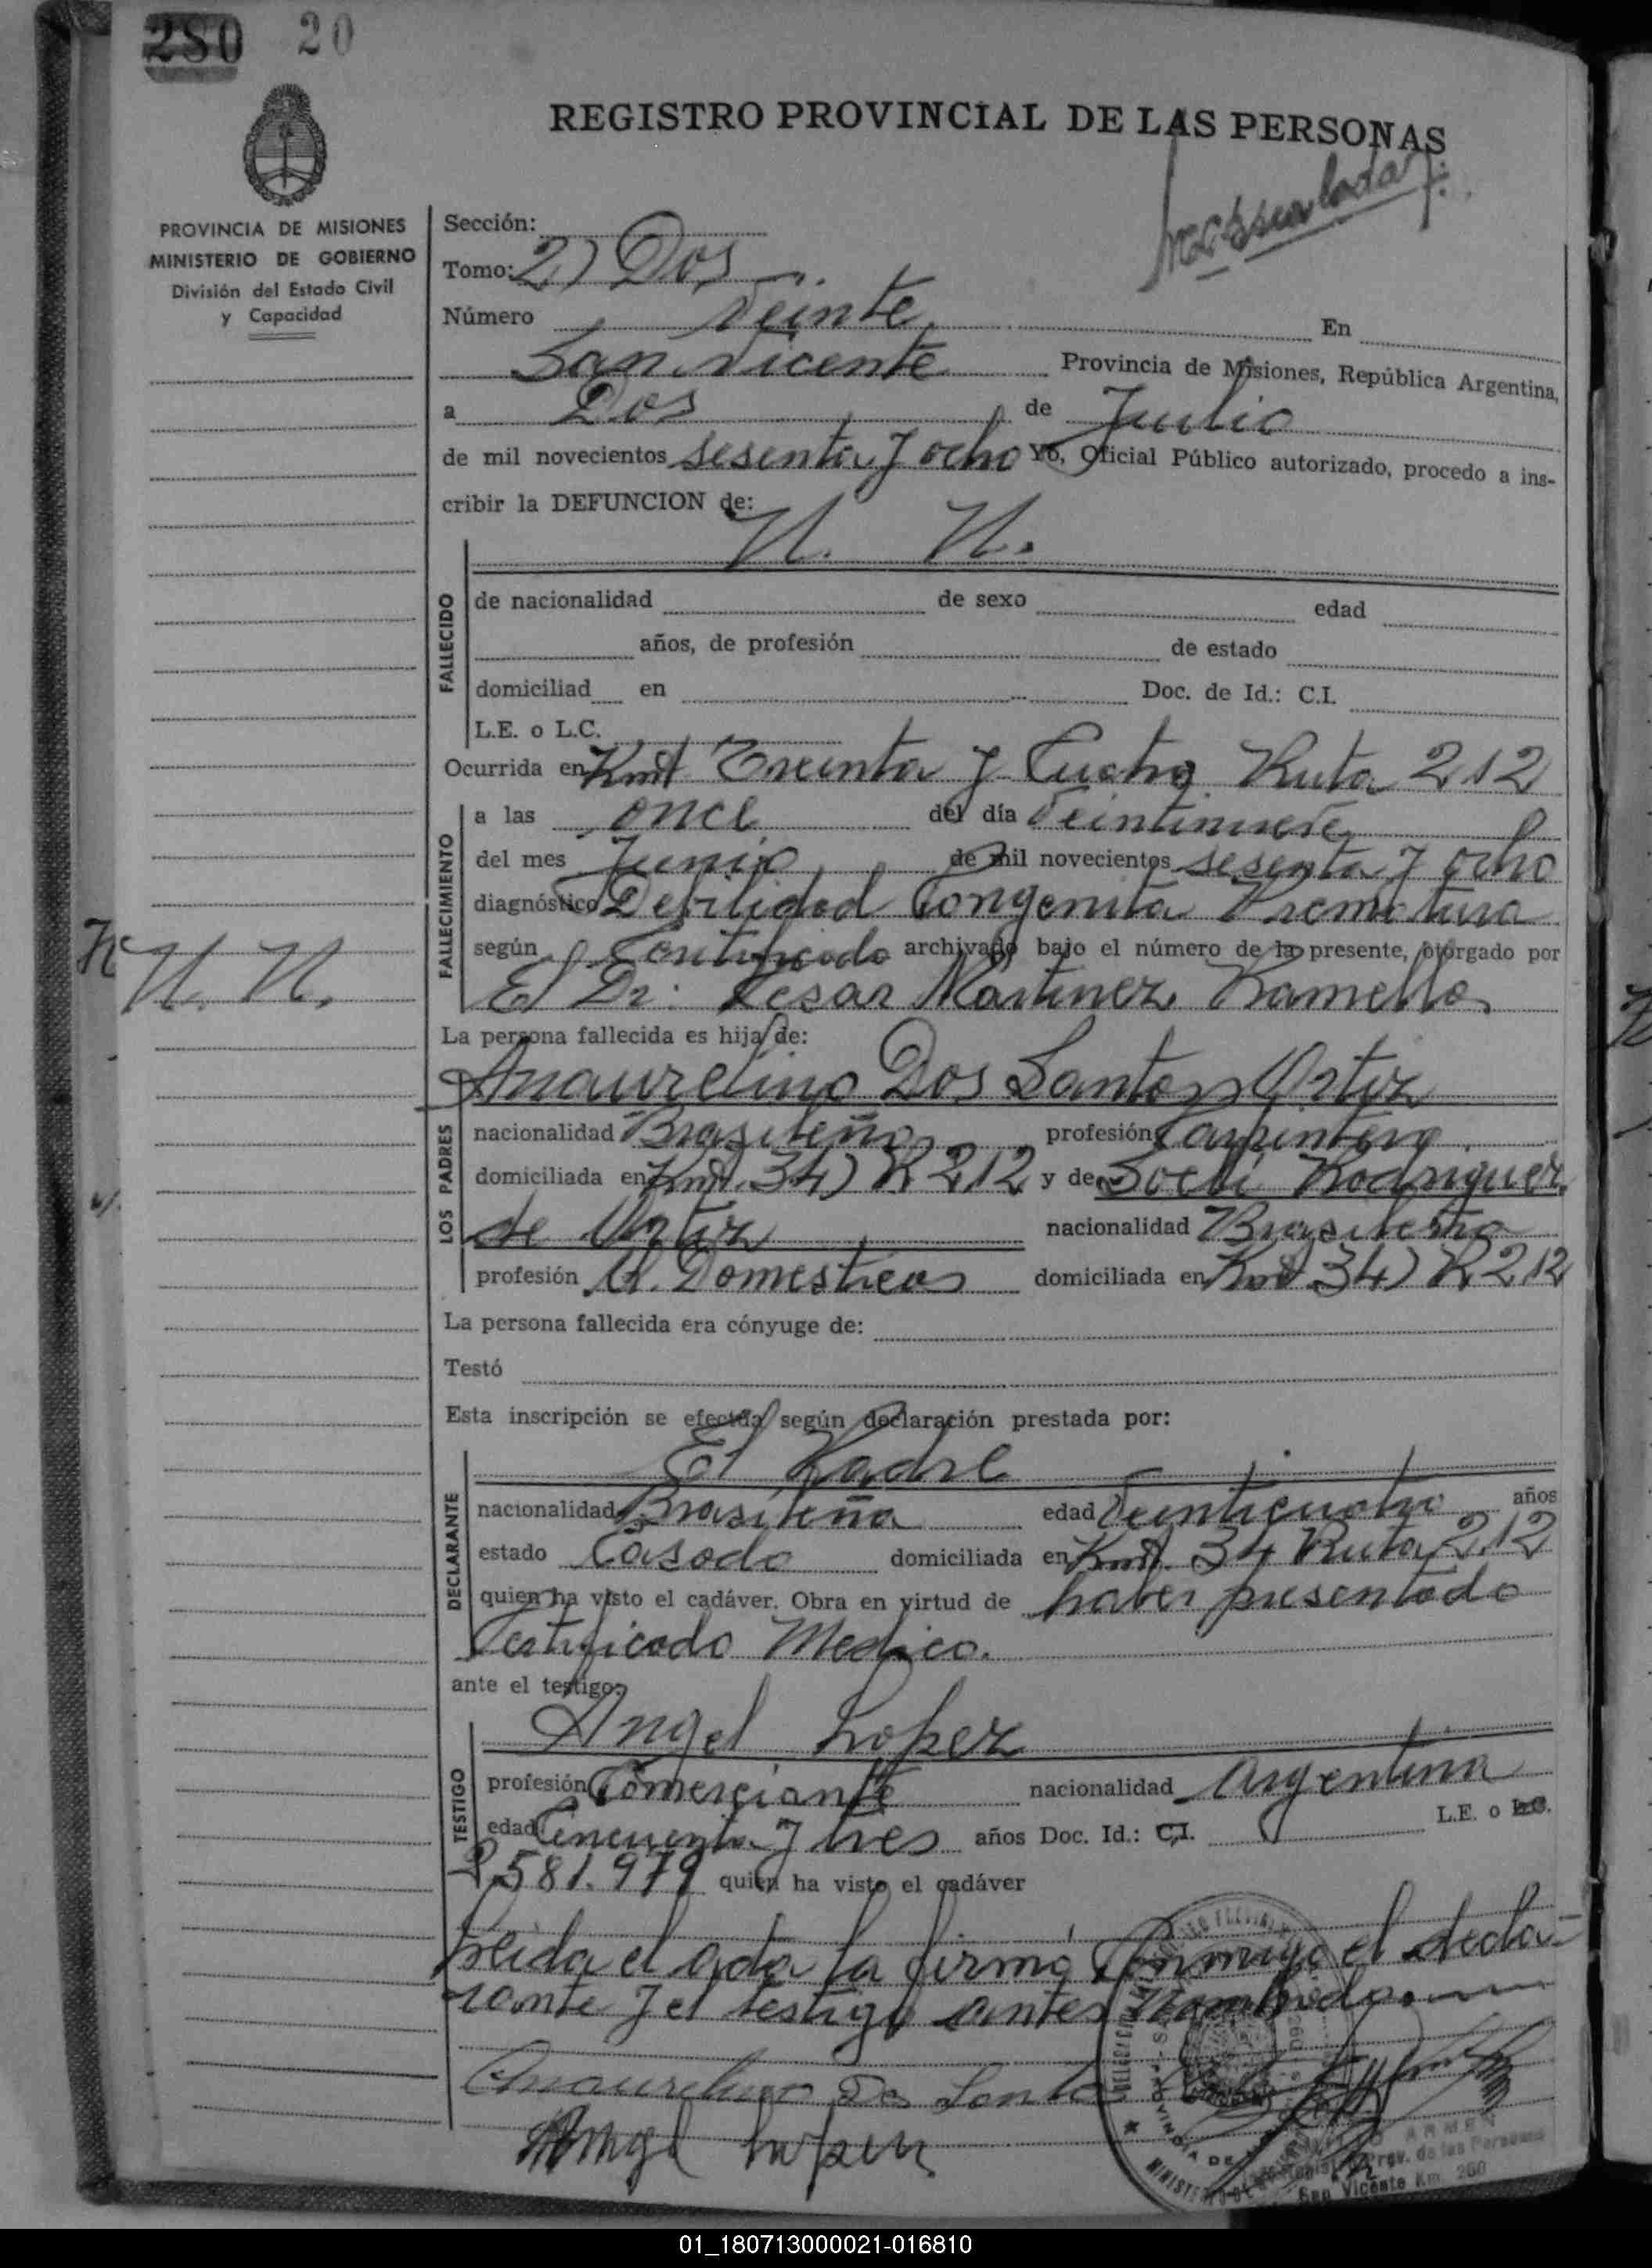 280 20
REGISTRO PROVINCIAL DE LAS PERSONAS
PROVINCIA DE MISIONES
MINISTERIO DE GOBIERNO
División del Estado Civil
y Capacidad
Sección:
Tomo: 2) Dos
Número Veinte En
San Vicente Provincia de Misiones, República Argentina,
a Dos de Julio
de mil novecientos sesenta y ocho Yo, Oficial Público autorizado, procedo a ins-
cribir la DEFUNCION de:
N. N.
FALLECIDO
de nacionalidad de sexo edad
años, de profesión de estado
domiciliad en Doc. de Id.: C.I.
L.E. o L.C.
Ocurrida en Kmt Treinta y Cuatro Ruta 212
FALLECIMIENTO
a las once del día Veintinueve
del mes Junio de mil novecientos sesenta y ocho
diagnóstico Debilidad Congenita Prematura
según Certificado archivado bajo el número de la presente, otorgado por
N. N.
El Dr: Cesar Martinez Ramello
La persona fallecida es hija de:
Anaurelino Dos Santos Ortiz
LOS PADRES
nacionalidad Brasileña profesión Carpintero
domiciliada en Kmt. 34) R 212 y de Soeli Rodriguez
de Ortiz nacionalidad Brasileña
profesión Q. Domesticos domiciliada en Kmt 34) R 212
La persona fallecida era cónyuge de:
Testó
Esta inscripción se efectúa según declaración prestada por:
El Padre
DECLARANTE
nacionalidad Brasileña edad Veinticuatro años
estado Casado domiciliada en Kmt. 34 Ruta 212
quien ha visto el cadáver. Obra en virtud de haber presentado
Certificado Medico.
ante el testigo:
Angel Lopez
TESTIGO
profesión Comerciante nacionalidad Argentina
edad Cincuenta y tres años Doc. Id.: C.I. L.E. o L.C.
2.581.979 quien ha visto el cadáver
Leida el acta la firmó Conmigo el decla-
rante y el testigo antes Nombrado.
Anaurelino Dos Santo
Angel Lopez
Prov. de las Personas
San Vicente Km. 260
01_180713000021-016810